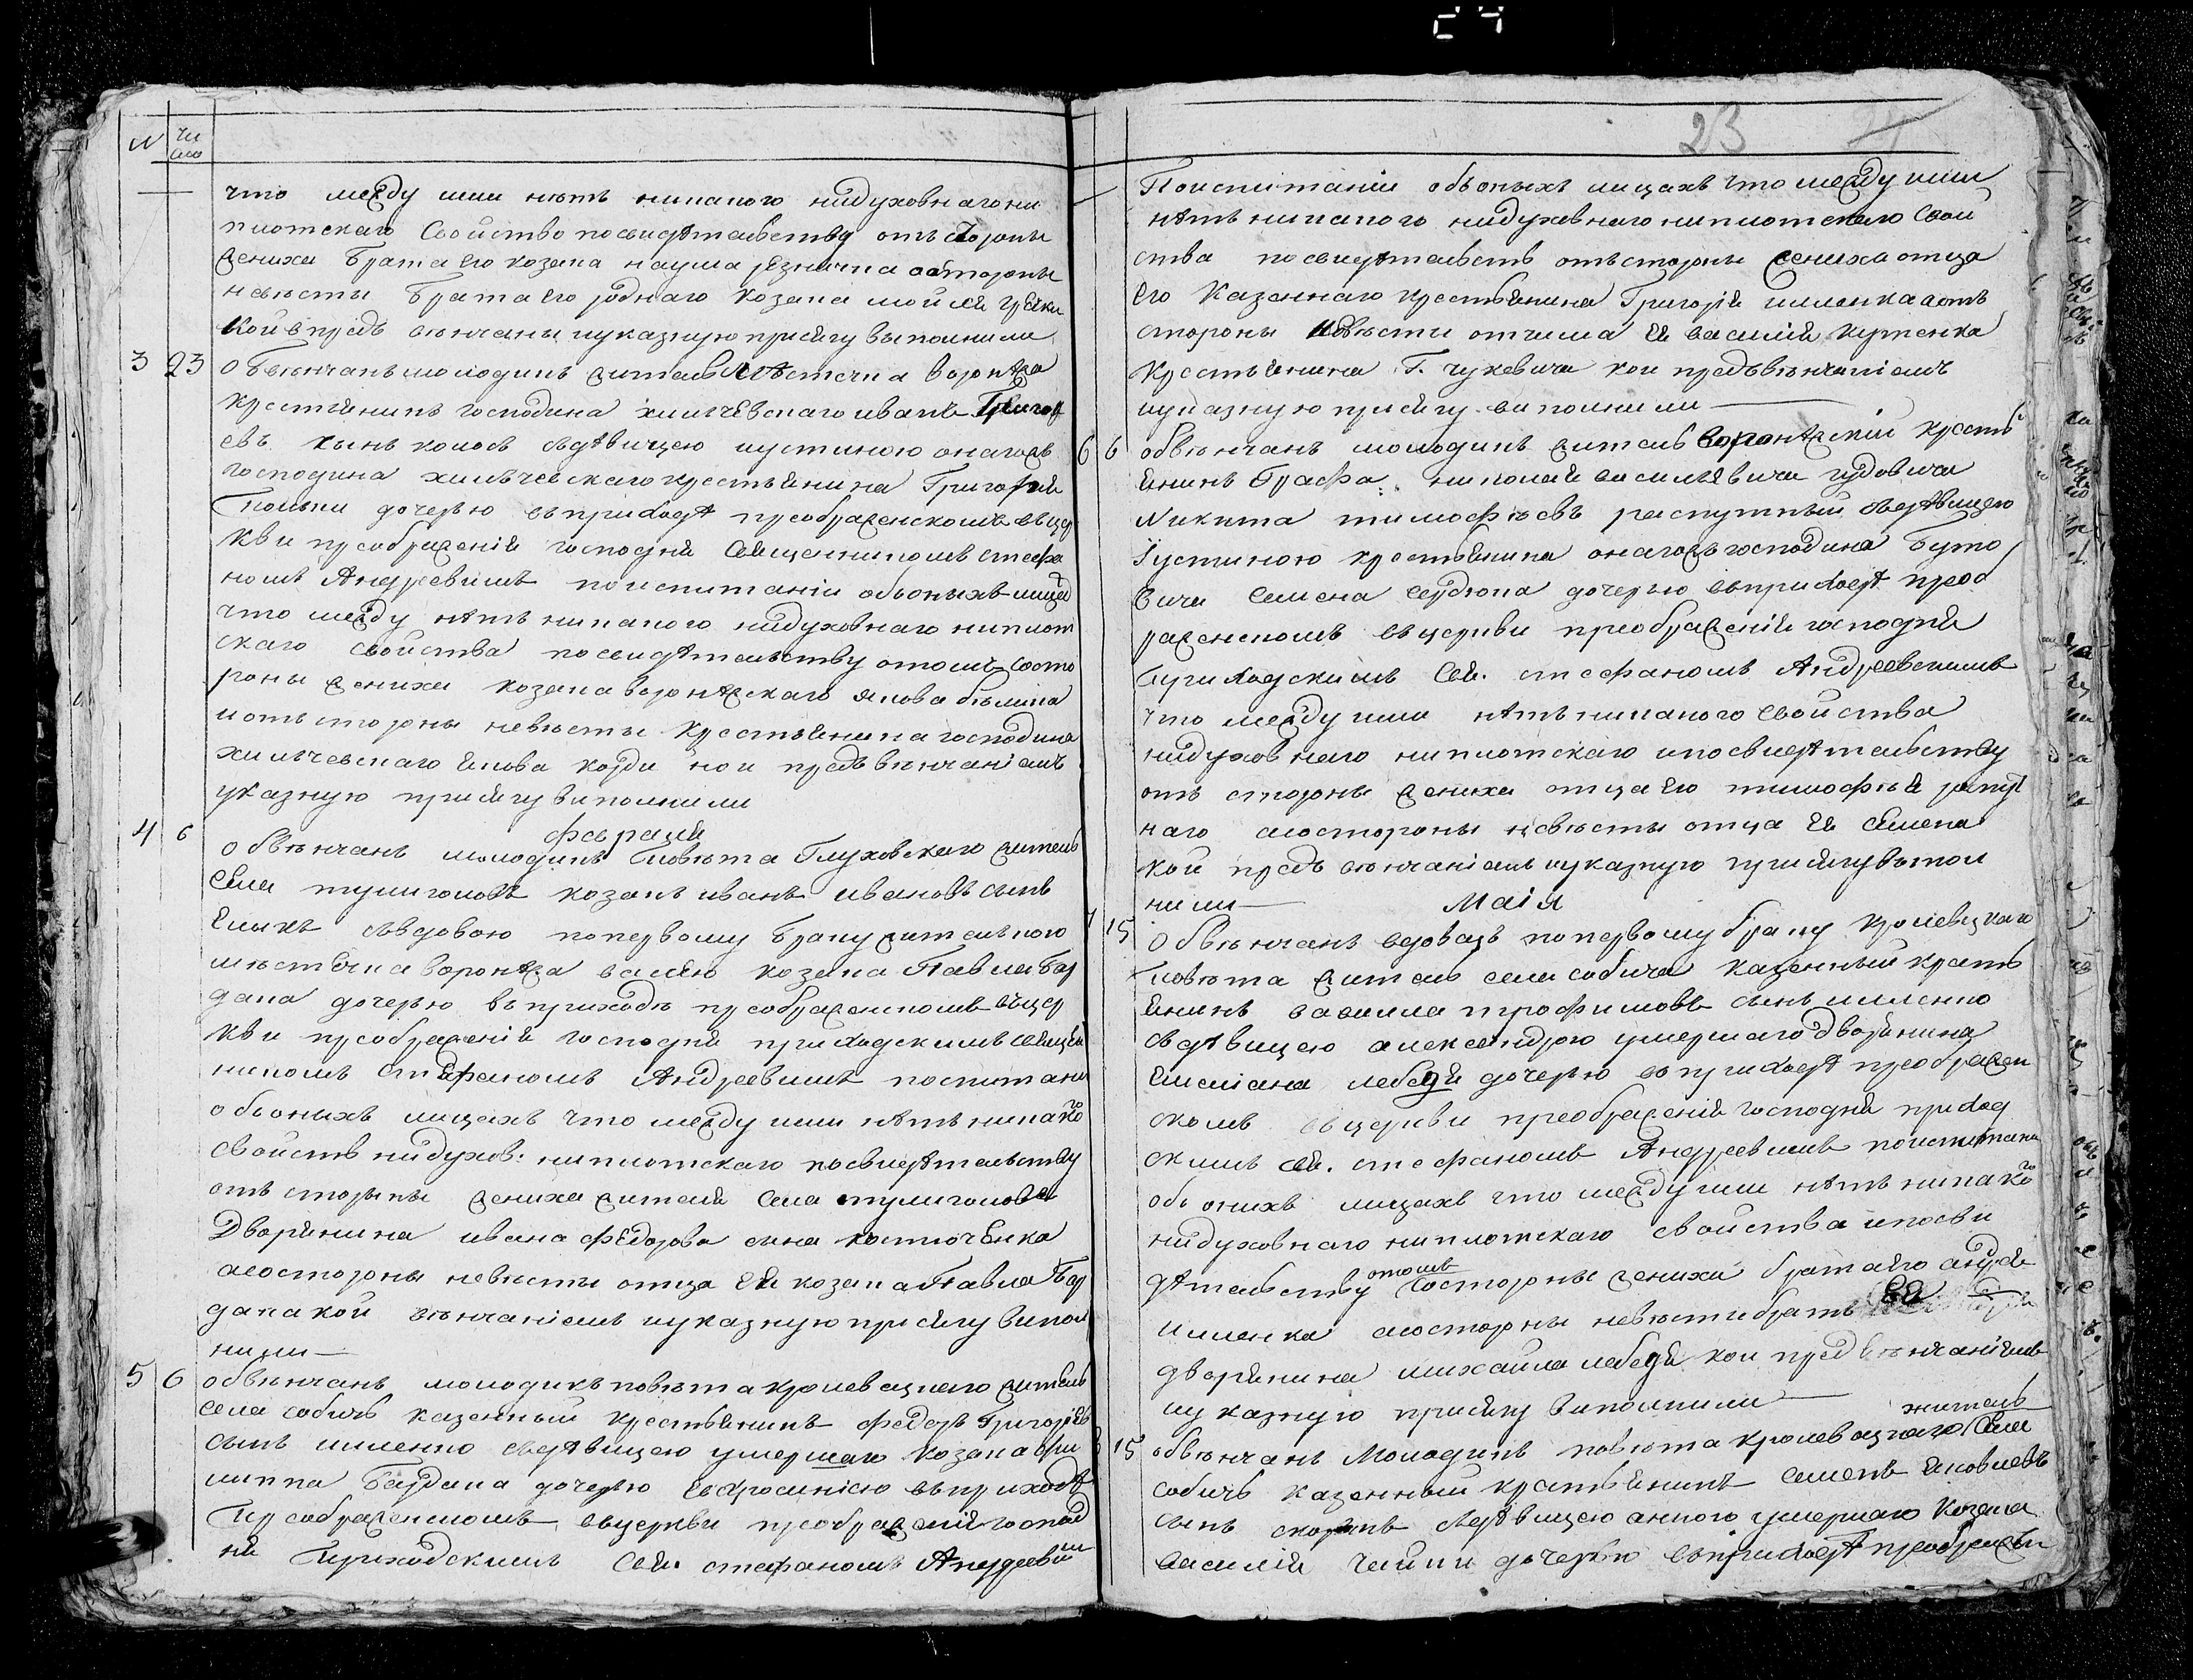 23
N Чи
сло
что между ими нѣтъ никакого нидуховнаго ни
плотскаго свойства посвидѣтельству отъ стороны
жениха брата его козака наума резничка состороны
невѣсты брата его роднаго козака мойсея гречки
кои впредъ вѣнчаны иуказную присягу выполнили
3 23 обвѣнчанъ молодикъ житель мѣстечка воронежа
крестянинъ господина хилчевскаго иванъ Григор
евъ сынъ колосъ сдѣвицею иустиною оногожъ
господина хильчевскаго крестьянина Григорія
дочерью въприходѣ преображенскомъ вцер
кви преображенія господня священникомъ стефа
номъ Андреевимъ поиспитаніи обоныхъ лицах
что между нѣтъ никакого нидуховнаго ниплот
скаго свойства посвидѣтельству отомъ состо
роны жениха козака воронежскаго якова бѣлика
иотъ стороны невѣсты крестьянина господина
хильчевскаго якова корди кои предъ вѣнчаніемъ
указную присягу виполнили
февраля
4 6 обвѣнчанъ молодикъ повѣта Глуховскаго житель
села тулиголовъ козакъ иванъ ивановъ сынъ
съвдовою попервому браку жителкою
мѣстечка воронежа козака Павла бар
дака дочерью въприходѣ преображенскомъ вцер
кви преображенія господня приходскимъ священ
никомъ стефаномъ Андреевимъ поспитани
обонихъ лицахъ что между ими нѣтъ никакого
свойств нидухов: ниплотскаго посвидѣтельству
отъ стороны жениха жителя села тулиголова
дворянина ивана федорова сина костюченка
асостороны невѣсти отца ея козака Павла бар
дака кои вѣнчаніемъ иуказную присягу випол
нили
5 6 обвѣнчанъ молодикъ повѣта кролевацкаго житель
села собичъ казенный крестьянинъ федоръ Григоріевъ
сынъ шиленко сдѣвицею умершаго козака фи
липпа бардака дочерью евфросиніею въприходѣ
Преображенскомъ вцеркви преображенія господ
ня Приходскимъ свя. стефаномъ Андреевим
Поиспитаніи обоныхъ лицахъ что между ими
нѣтъ никакого нидуховнаго ниплотскаго свой
ства посвидѣтельств отъстороны жениха отца
его казеннаго крестьянина Григорія шиленка аотъ
стороны невѣсти отчима ея василія кутенка
крестьянина Г. чукевича кои предъвѣнчаніемъ
иуказную присягу виполнили
6 6 обвѣнчанъ молодикъ житель воронежскій крестъ
янинъ Графа николая василіевича гудовича
Никита тимофѣевъ распутный здѣвицею
Іустиною крестянина оногожъ господина Гудо
вича семена сердюка дочерью въприходѣ преоб
раженскомъ въцеркви преображенія господня
Приходскимъ свя. стефаномъ Андреевскимъ
что между ими нѣтъ никакого свойства
нидуховнаго ниплотскаго ипосвидѣтельству
отъ стороны жениха отца его тимофѣя распут
наго асостороны невѣсты отца ея семена
кои предъ вѣнчаніемъ иуказную присягу випол
нили
Маія
7 15 обвѣнчанъ вдовецъ попервому браку кролевцкаго
повѣта житель села собича казенный кресть
янинъ вавила трофимовъ сынъ шиленко
сдѣвицею александрою умершаго дворянина
емеліана лебедя дочерью въприходѣ преображен
скомъ въцеркви преображенія господня приход
скимъ свя. стефаномъ Андреевимъ поиспитани
обонихъ лицахъ что между ими нѣтъ никакого
нидуховнаго ниплотскаго свойства ипосви
дѣтельству отомъ состороны жениха брата его андрея
шиленка асостороны невѣсти братъ ея
дворянина михаила лебедя кои предвѣнчаніемъ
иуказную присягу виполнили
8 15 обвѣнчанъ Молодикъ повѣта кролевацкаго житель села
собичъ казенный крестьянинъ семенъ яковлевъ
сынъ здѣвицею анною умершаго козака
василія дочерью въприходѣ преображен